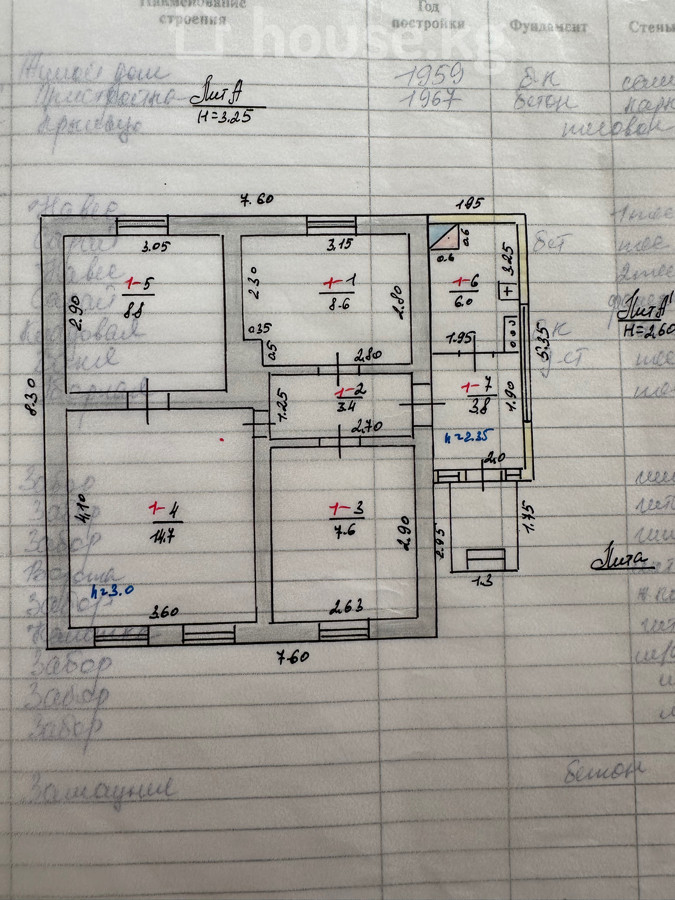 Наименование строения
Год постройки
Фундамент
Стены
house.kg
Жилой дом 1959
Пристройка 1967 бетон карк
Крыльцо
Лит А
H=3.25
Навес
Сарай
Навес
Сарай
Кладовая
Баня
Забор
Забор
Забор
Ворота
Забор
Калитка
Забор
Забор
Забор
Замощение бетон
7.60
1.95
3.05
3.15
0.6
0.6
3.25
1-5
8.8
2.90
2.30
1-1
8.6
2.80
1-6
6.0
Лит А'
H=2.60
0.35
0.5
2.80
1.95
5.35
8.30
1.25
1-2
3.4
2.70
1-7
3.8
1.90
h=2.35
2.0
4.10
1-4
14.7
1-3
7.6
2.90
2.95
1.75
Лит а
1.3
h=3.0
3.60
2.63
7.60